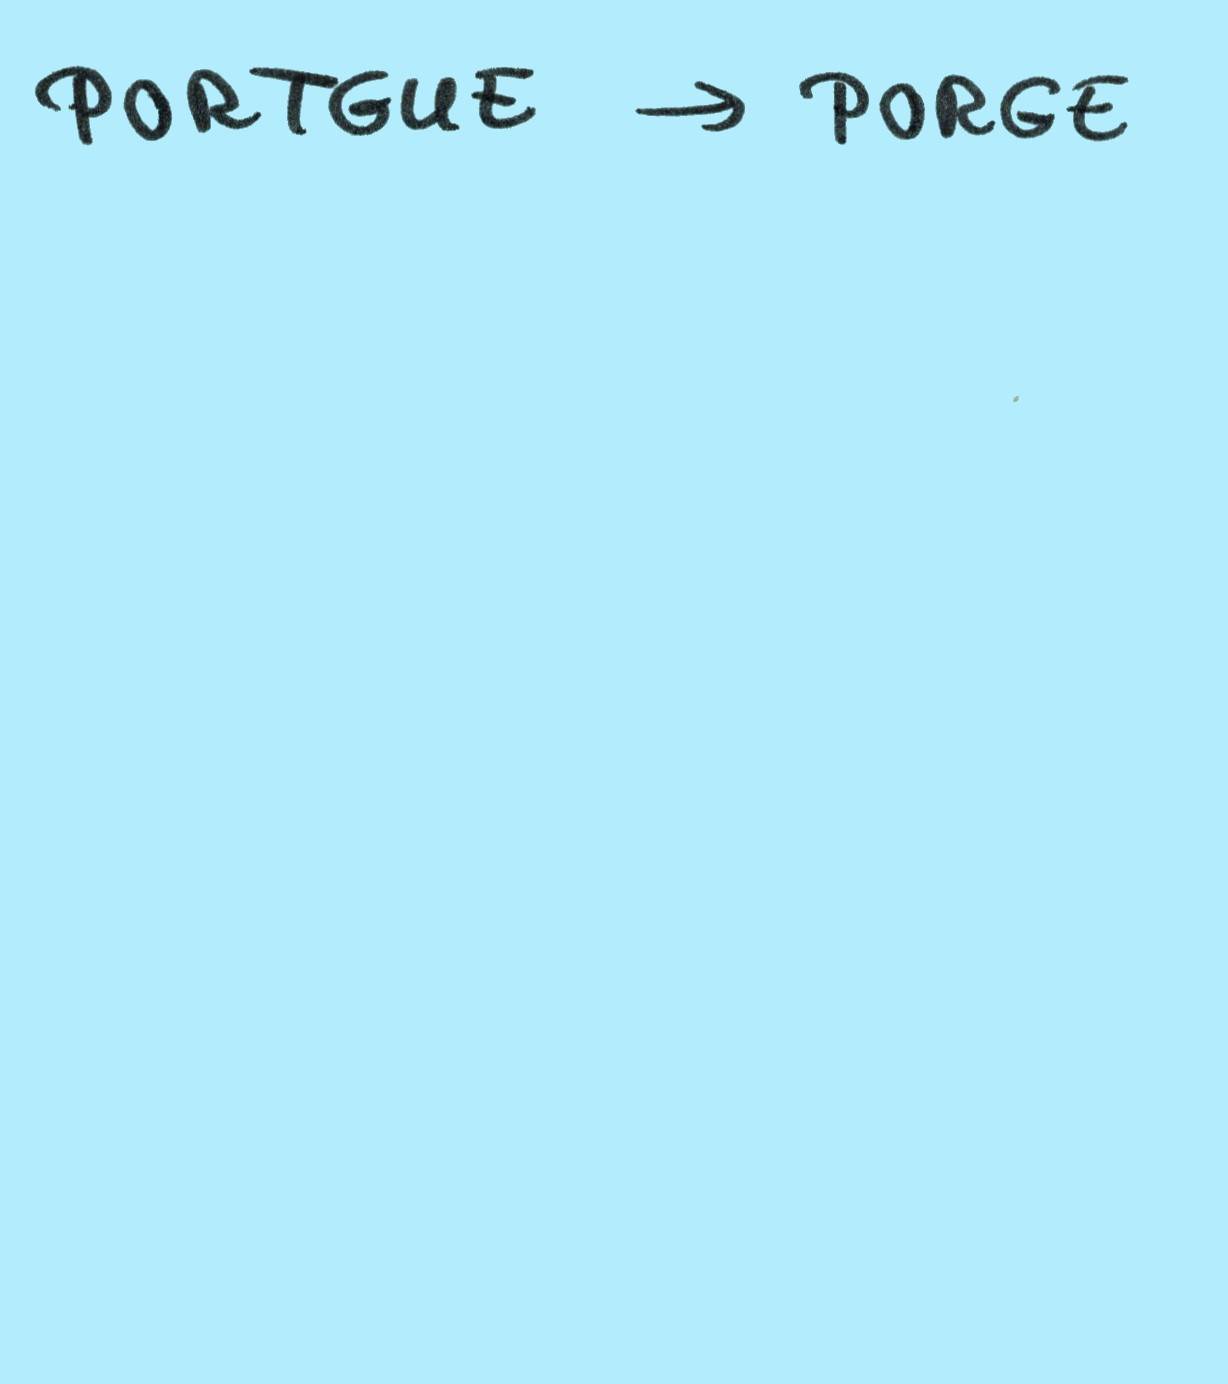 PORTGUE → PORGE